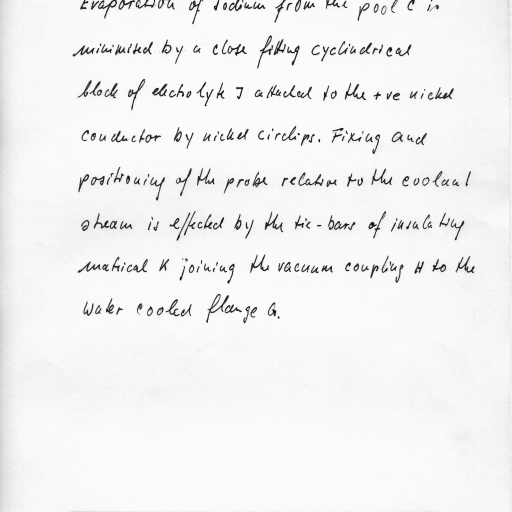 Evaporation of sodium from the pool C is
minimised by a close fitting cyclindrical
block of electrolyte J attached to the +ve nickel
conductor by nickel circlips. Fixing and
positioning of the probe relative to the coolant
stream is effected by the tie-bars of insulating
material K joining the vacuum coupling H to the
water cooled flange G.